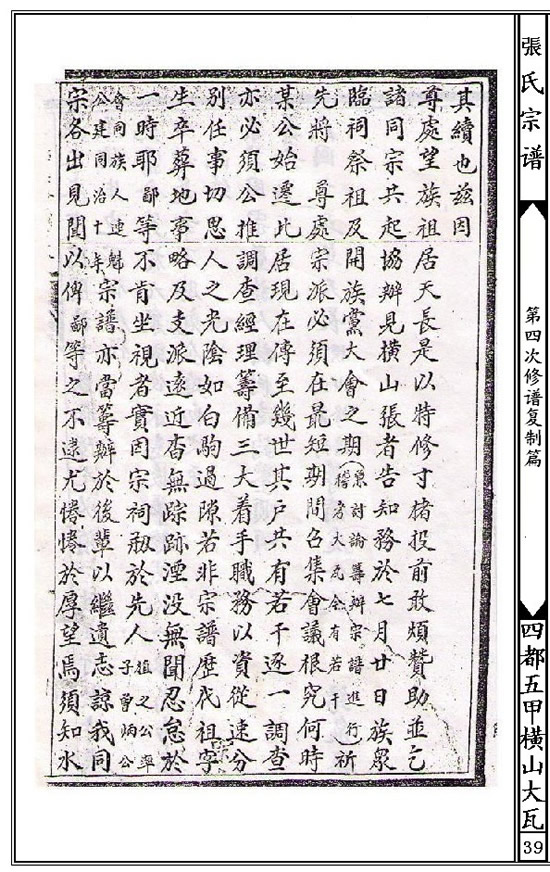 張氏宗谱
第四次修谱复制篇
四都五甲橫山大瓦
39
其續也兹因
尊處望族祖居天長是以特修寸楮投前敢煩贊助並乞
諸同宗共起協辦見橫山張者告知務於七月廿日族衆
臨祠祭祖及開族黨大會之期 討論籌辦宗譜進行 考大瓦全有若干 祈
先將 尊處宗派必須在最短期間召集會議根究何時
某公始遷此居現在傳至幾世其户共有若干逐一調查
亦必須公推調查經理籌備三大着手職務以資從速分
别任事切思人之光陰如白駒過隙若非宗譜歷代祖字
生卒葬地事略及支派遠近杳無踪跡湮没無聞忍怠於
一時耶鄙等不肯坐視者實因宗祠剏於先人 祖之公率 子曾炳公
會同族人連魁 公建同治十年 宗譜亦當籌辦於後輩以繼遺志諒我同
宗各出見聞以俾鄙等之不遠尤惓惓於厚望焉須知水